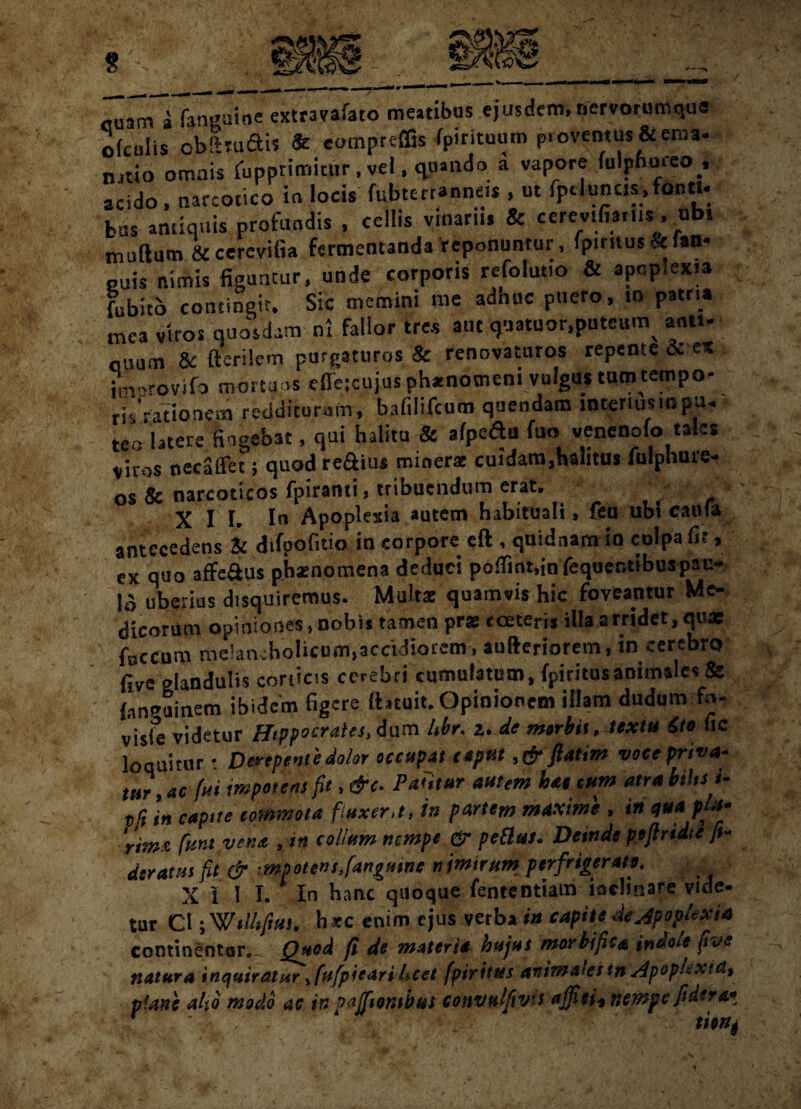 8
quam à sanguine extravasato meatibus ejusdem, nervorumque
osculis obstructis & compressis spirituum proventus & ema-
natio omnis supprimitur, vel, quando à vapore sulphureo,
acido, narcotico in locis subterranneis, ut speluncis, fonti-
bus antiquis profundis, cellis vinariis & cerevisiariis, ubi
mustum & cerevisia fermentanda reponuntur, spiritus & san-
guis nimis figuntur, unde corporis resolutio & apoplexia
subitò contingit. Sic memini me adhuc puero, in patria
mea viros quosdam ni fallor tres aut quatuor, puteum anti-
quum & sterilem purgaturos & renovaturos repente & ex
improviso mortuos esse; cujus phænomeni vulgus tum tempo-
ris rationem redditurum, basiliscum quendam interius in pu-
teo latere fingebat, qui halitu & aspectu suo venenoso tales
viros necâsset; quod rectius mineræ cuidam, halitus sulphure-
os & narcoticos spiranti, tribuendum erat.
XII. In Apoplexia autem habituali, seu ubi causa
antecedens & dispositio in corpore est, quidnam in culpa sit,
ex quo affectus phænomena deduci possint, in sequentibus pau-
lò uberius disquiremus. Multæ quamvis hic foveantur Me-
dicorum opiniones, nobis tamen præ cœteris illa arridet, quæ
succum melancholicum, accidiorem, austeriorem, in cerebro
sive glandulis corticis cerebri cumulatum, spiritus animales &
sanguinem ibidem figere statuit. Opinionem illam dudum fo-
visse videtur Hippocrates, dum libr. 2. de morbis, textu 6to sic
loquitur: Derepentè dolor occupat caput, & statim voce priva-
tur, ac sui impotens fit, &c. Patitur autem hæc cum atra bilis i-
psi in capite commota fluxerit, in partem maximè, in qua plu-
rimæ sunt venæ, in collum nempe & pectus. Deinde postridiè si-
deratus fit & impotens, sanguine nimirum perfrigerato.
XIII. In hanc quoque sententiam inclinare vide-
tur Cl; Willisius. hæc enim ejus verba in capite de Apoplexia
continentur. Quod si de materia hujus morbifica indole sive
natura inquiratur, suspicari licet spiritus animales in Apoplexia,
planè aliò modò ac in passionibus convulsivis affici, nempe sidera-
tioni